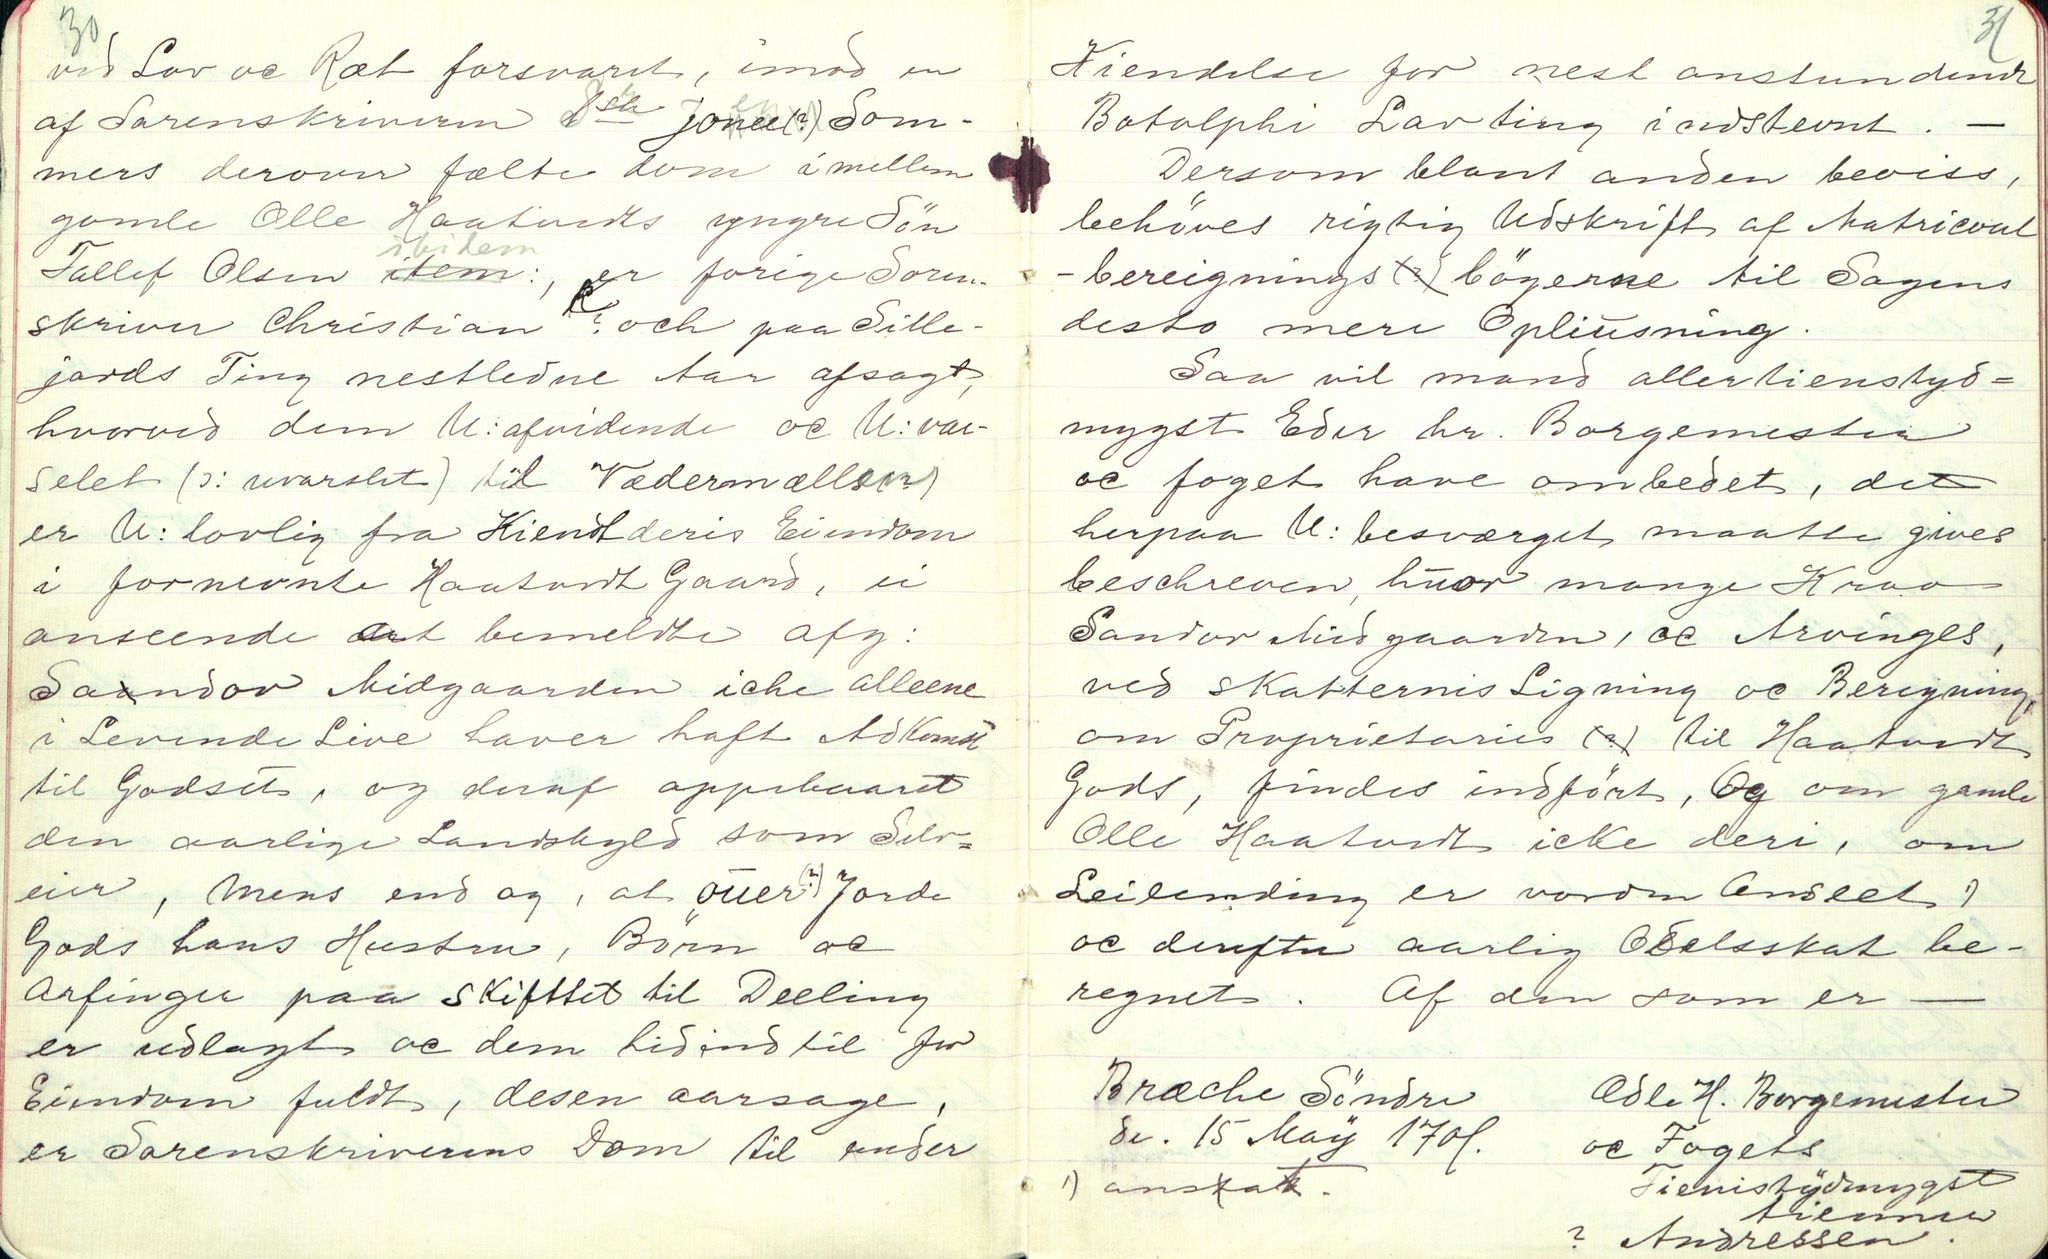 30
ved Lov oc Ræt forsvaret, imod en
af Sorenskriveren Jonee(?) Som-
mers derover fælte dom imellem
gamle Olle Haatvedts yngre Sön
ibidem
Tallef Olsen item:, er forige Soren-
skriver Christian ? och paa Sille-
jords Ting nestledne Aar afsagt,
hvorved dem U:afvidende oc U:var-
selet (ɔ: uvarslet) til Vedermælls(?)
er U:lovlig fra Kiendt deris Eiendom
i fornevnte Haatvedt Gaard, ei
anseende at bemeldte afg:
Sandov Midgaarden iche alleene
i Levende Live haver haft Adkomst
til Godset, og deraf oppebaaret
den aarlige Landskyld som Selv=
eier, Mens end og, at ouer(?) Jorde
Gods hans Hustru, Börn oc
Arfinger paa Skifttet til Deeling
er udlagt oc dem hid ind til for
Eiendom fuldt, desen aarsage,
er Sorenskriverens Dom til under
31
Kiendelse for nest anstundende
Botolphi Lavting indstevnt. —
Dersom blant anden beviss,
behöves rigtig Udskrift af Matricoul
-bereignings(?) bögerne til Sagens
desto mere Opliusning.
Saa vil mand allertienstyd=
mygst Eder hr. Borgemester
oc foget have ombedet, det
herpaa U:besværget maatte gives
beschreven, huor mange Krav
Sandov Midgaarden, oc Arvinges,
ved skatternis Ligning oc Beregning,
om Proprietaries (?) til Haatvedt
Gods, findes indfört, Og om gamle
Olle Haatvedt icke deri, om
Leilending er vorden Andeet 1)
oc derefter aarlig Odelsskat be-
regnet. Af den som er —
Bræche Söndre
de. 15 Maÿ 1701.
1) anskat.
Odle H. Borgemester
oc Fogets
Tienistÿdmygst
tienner
? Andressen.